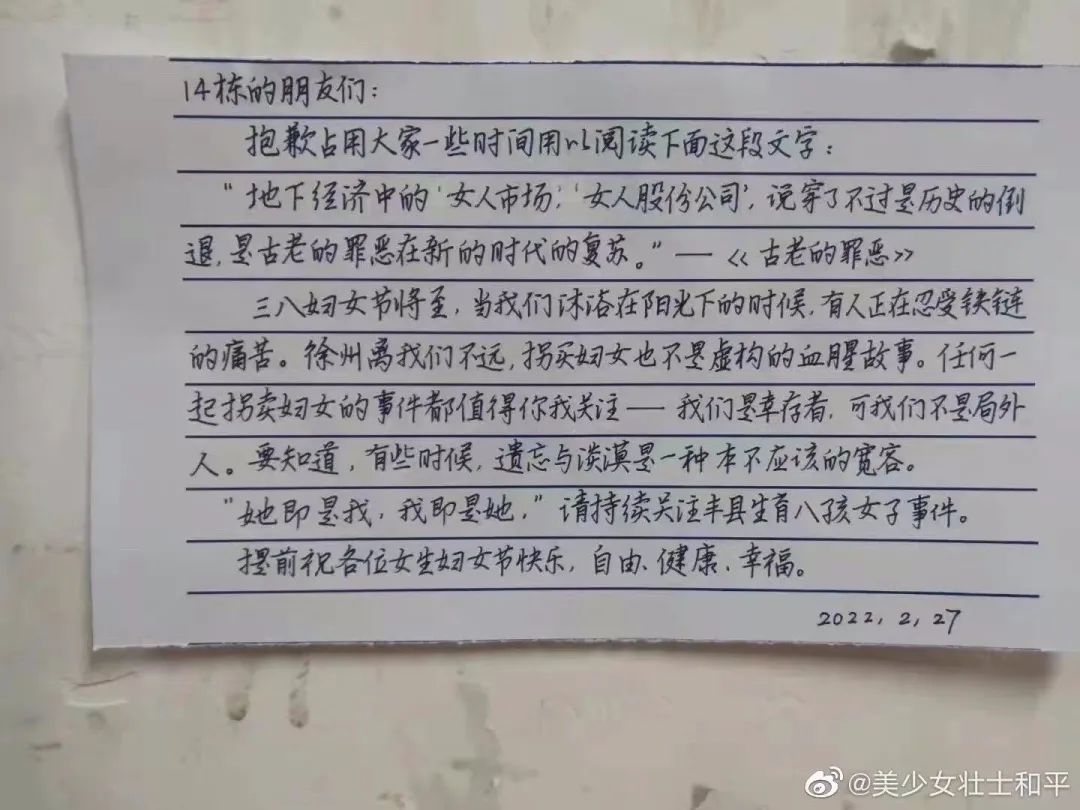 14栋的朋友们：
抱歉占用大家一些时间用以阅读下面这段文字：
“地下经济中的‘女人市场’‘女人股份公司’，说穿了不过是历史的倒
退，是古老的罪恶在新的时代的复苏。”——《古老的罪恶》
三八妇女节将至，当我们沐浴在阳光下的时候，有人正在忍受铁链
的痛苦。徐州离我们不远，拐买妇女也不是虚构的血腥故事。任何一
起拐卖妇女的事件都值得你我关注——我们是幸存者，可我们不是局外
人。要知道，有些时候，遗忘与淡漠是一种本不应该的宽容。
“她即是我，我即是她，”请持续关注丰县生育八孩女子事件。
提前祝各位女生妇女节快乐，自由、健康、幸福。
2022，2，27
@美少女壮士和平